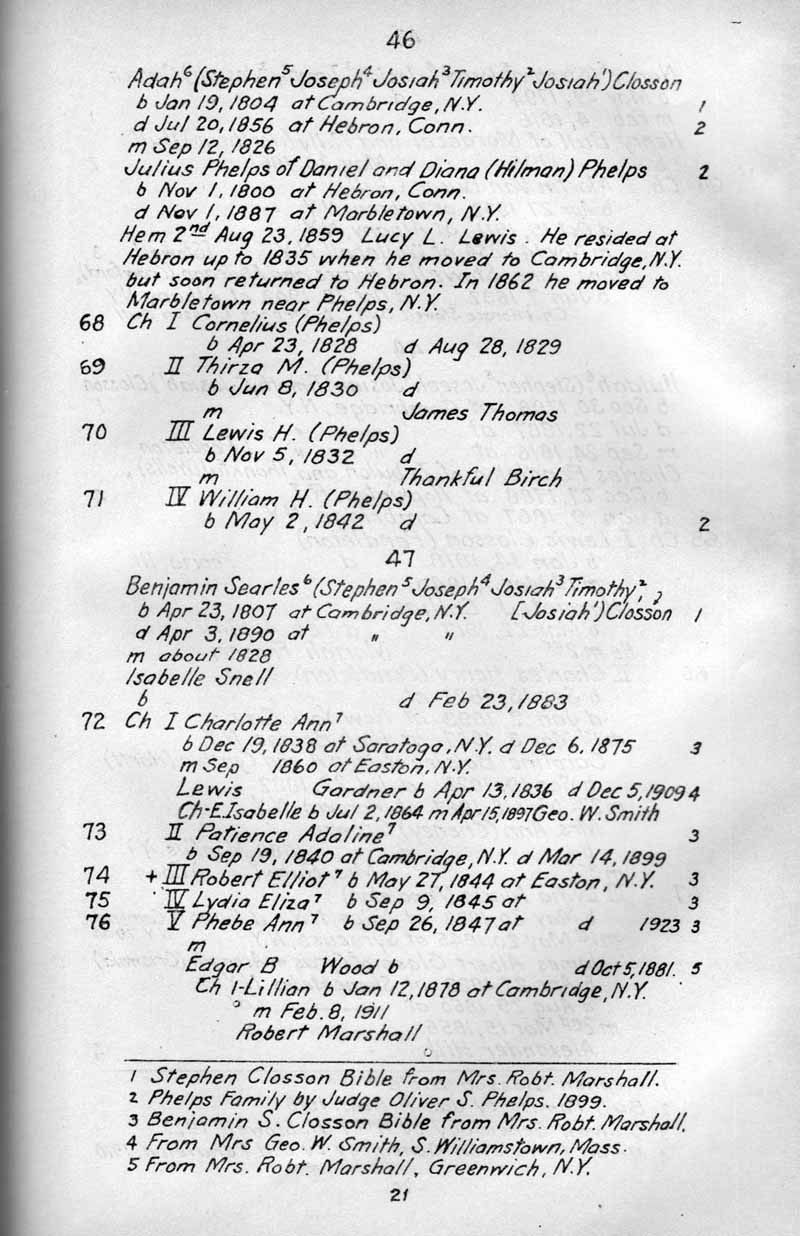 46
Adah⁶ (Stephen⁵ Joseph⁴ Josiah³ Timothy² Josiah¹) Closson
b Jan 19, 1804 at Cambridge, N.Y. 1
d Jul 20, 1856 at Hebron, Conn. 2
m Sep 12, 1826
Julius Phelps of Daniel and Diana (Hilman) Phelps 2
b Nov 1, 1800 at Hebron, Conn.
d Nov 1, 1887 at Marbletown, N.Y.
He m 2nd Aug 23, 1859 Lucy L. Lewis. He resided at
Hebron up to 1835 when he moved to Cambridge, N.Y.
but soon returned to Hebron. In 1862 he moved to
Marbletown near Phelps, N.Y.
68 Ch I Cornelius (Phelps)
b Apr 23, 1828 d Aug 28, 1829
69 II Thirza M. (Phelps)
b Jun 8, 1830 d
m James Thomas
70 III Lewis H. (Phelps)
b Nov 5, 1832 d
m Thankful Birch
71 IV William H. (Phelps)
b May 2, 1842 d 2
47
Benjamin Searles⁶ (Stephen⁵ Joseph⁴ Josiah³ Timothy²,
b Apr 23, 1807 at Cambridge, N.Y. [Josiah¹) Closson 1
d Apr 3, 1890 at " "
m about 1828
Isabelle Snell
b d Feb 23, 1883
72 Ch I Charlotte Ann⁷
b Dec 19, 1838 at Saratoga, N.Y. d Dec 6, 1875 3
m Sep 1860 at Easton, N.Y.
Lewis Gardner b Apr 13, 1836 d Dec 5, 1909 4
Ch-E. Isabelle b Jul 2, 1864 m Apr 15, 1897 Geo. W. Smith
73 II Patience Adaline⁷ 3
b Sep 19, 1840 at Cambridge, N.Y. d Mar 14, 1899
74 + III Robert Elliot⁷ b May 27, 1844 at Easton, N.Y. 3
75 IV Lydia Eliza⁷ b Sep 9, 1845 at 3
76 V Phebe Ann⁷ b Sep 26, 1847 at d 1923 3
m
Edgar B Wood b d Oct 5, 1881. 5
Ch 1-Lillian b Jan 12, 1878 at Cambridge, N.Y.
m Feb. 8, 1911
Robert Marshall
1 Stephen Closson Bible from Mrs. Robt. Marshall.
2 Phelps Family by Judge Oliver S. Phelps. 1899.
3 Benjamin S. Closson Bible from Mrs. Robt. Marshall.
4 From Mrs Geo. W. Smith, S. Williamstown, Mass.
5 From Mrs. Robt. Marshall, Greenwich, N.Y.
21